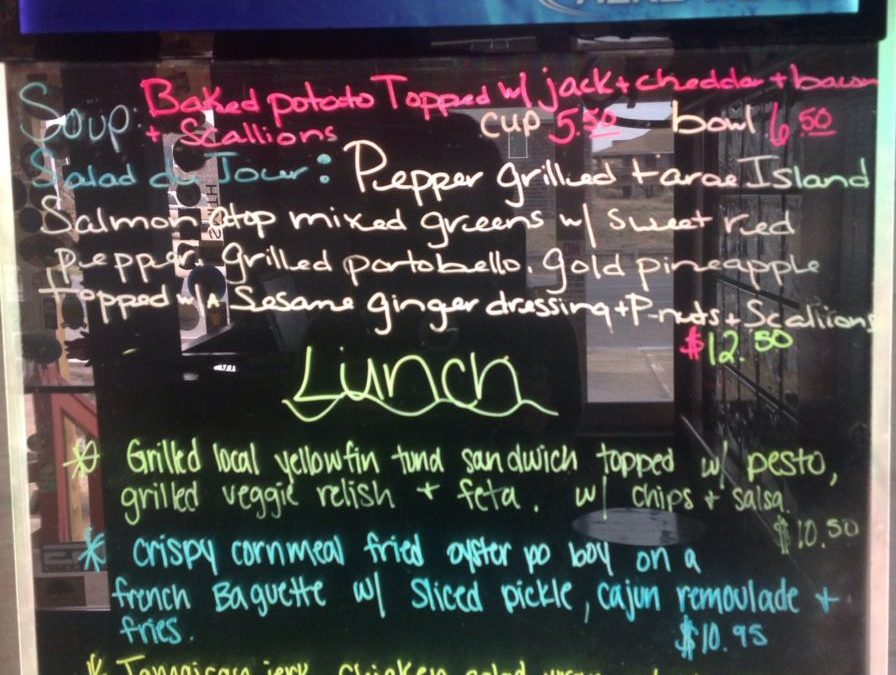 Soup: Baked potato Topped w/ jack + chedder + bacon
+ Scallions cup 5.50 bowl 6.50
Salad du Jour: Pepper grilled Farae Island
Salmon atop mixed greens w/ sweet red
pepper, grilled portobello, gold pineapple
topped w/ A Sesame ginger dressing + P-nuts + Scallions
$12.50
Lunch
* Grilled local yellowfin tuna sandwich topped w/ pesto,
grilled veggie relish + feta. w/ chips + salsa.
$10.50
* crispy cornmeal fried oyster po boy on a
french Baguette w/ sliced pickle, cajun remoulade +
fries.
$10.95
* Jamaican jerk chicken salad wrap